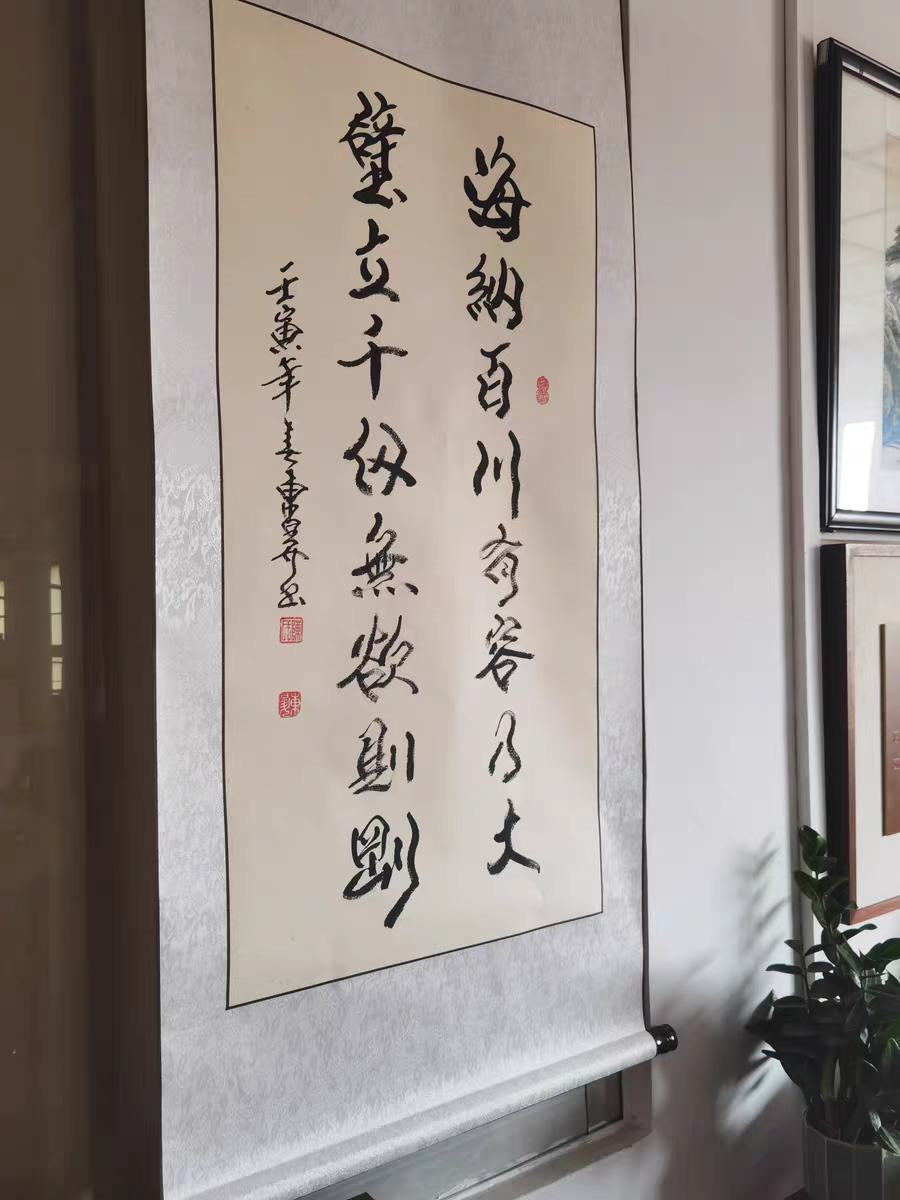 海納百川有容乃大
壁立千仞無欲則剛
壬寅年春東昇書